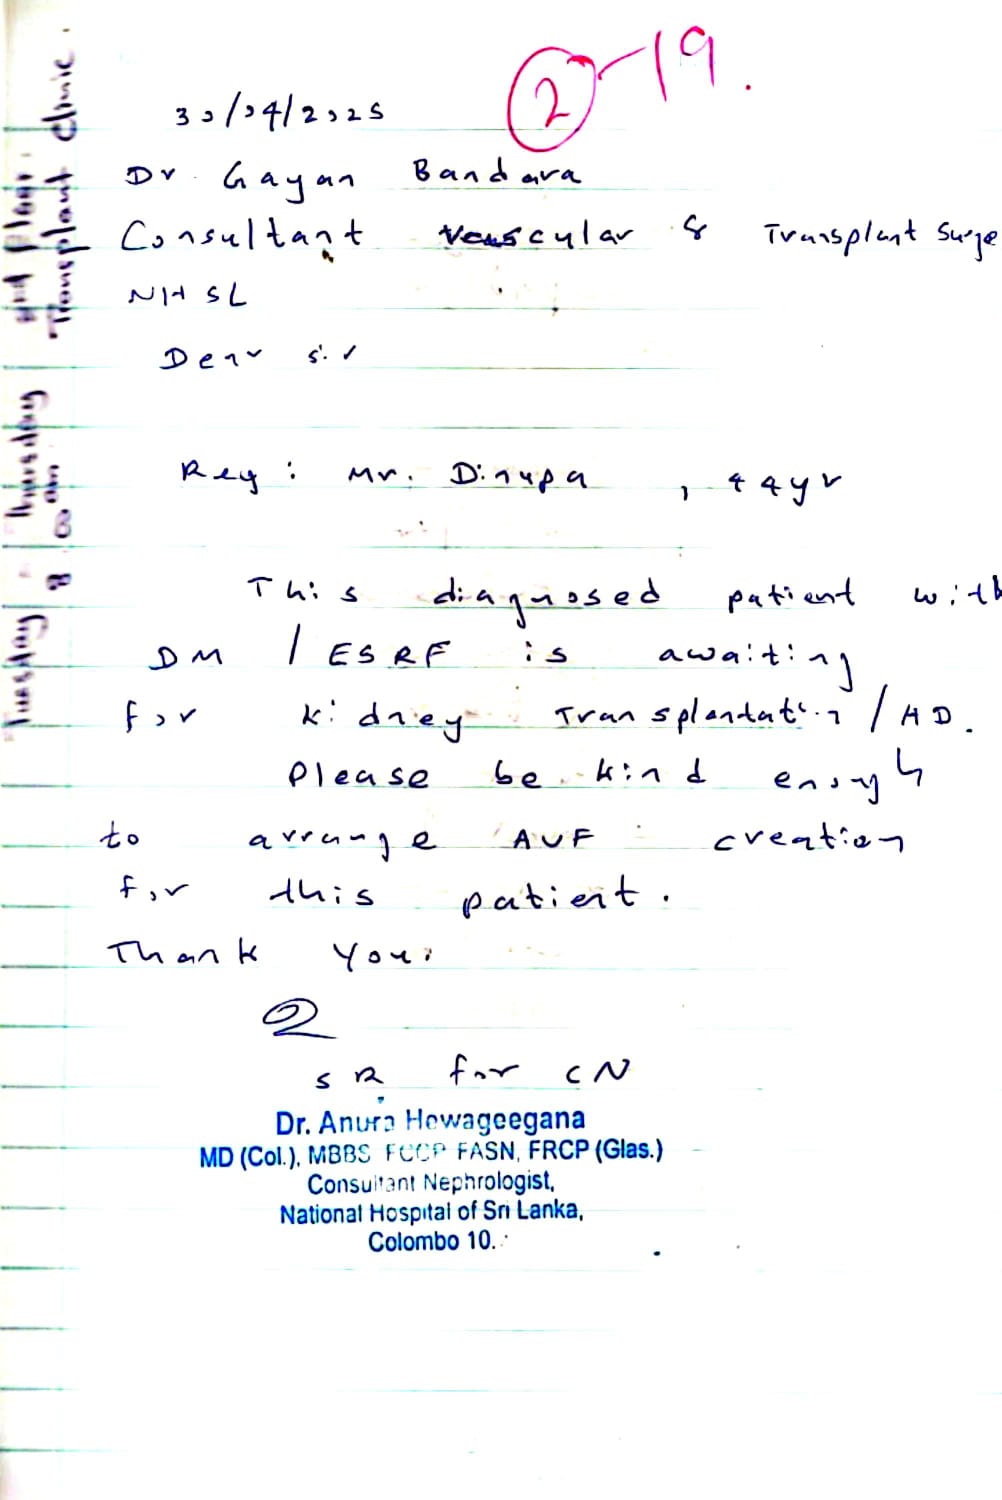 2-19.
30/04/2025
Dr. Gayan Bandara
Consultant Vascular & Transplant Surge
NHSL
Dear Sir
Reg: Mr. Dinupa, 44yr
This diagnosed patient with
DM / ESRF is awaiting
for kidney Transplantation / HD.
Please be kind enough
to arrange AVF creation
for this patient.
Thank You.
SR for CN
Dr. Anura Hewageegana
MD (Col.), MBBS FCCP FASN, FRCP (Glas.)
Consultant Nephrologist,
National Hospital of Sri Lanka,
Colombo 10.
Tuesday / Thursday 2nd floor.
8.00 am Transplant clinic.